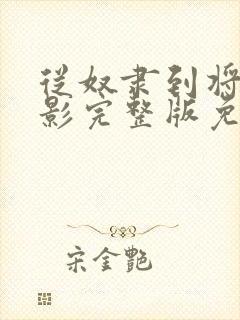 从奴隶到将
影完整版免
宋金艳